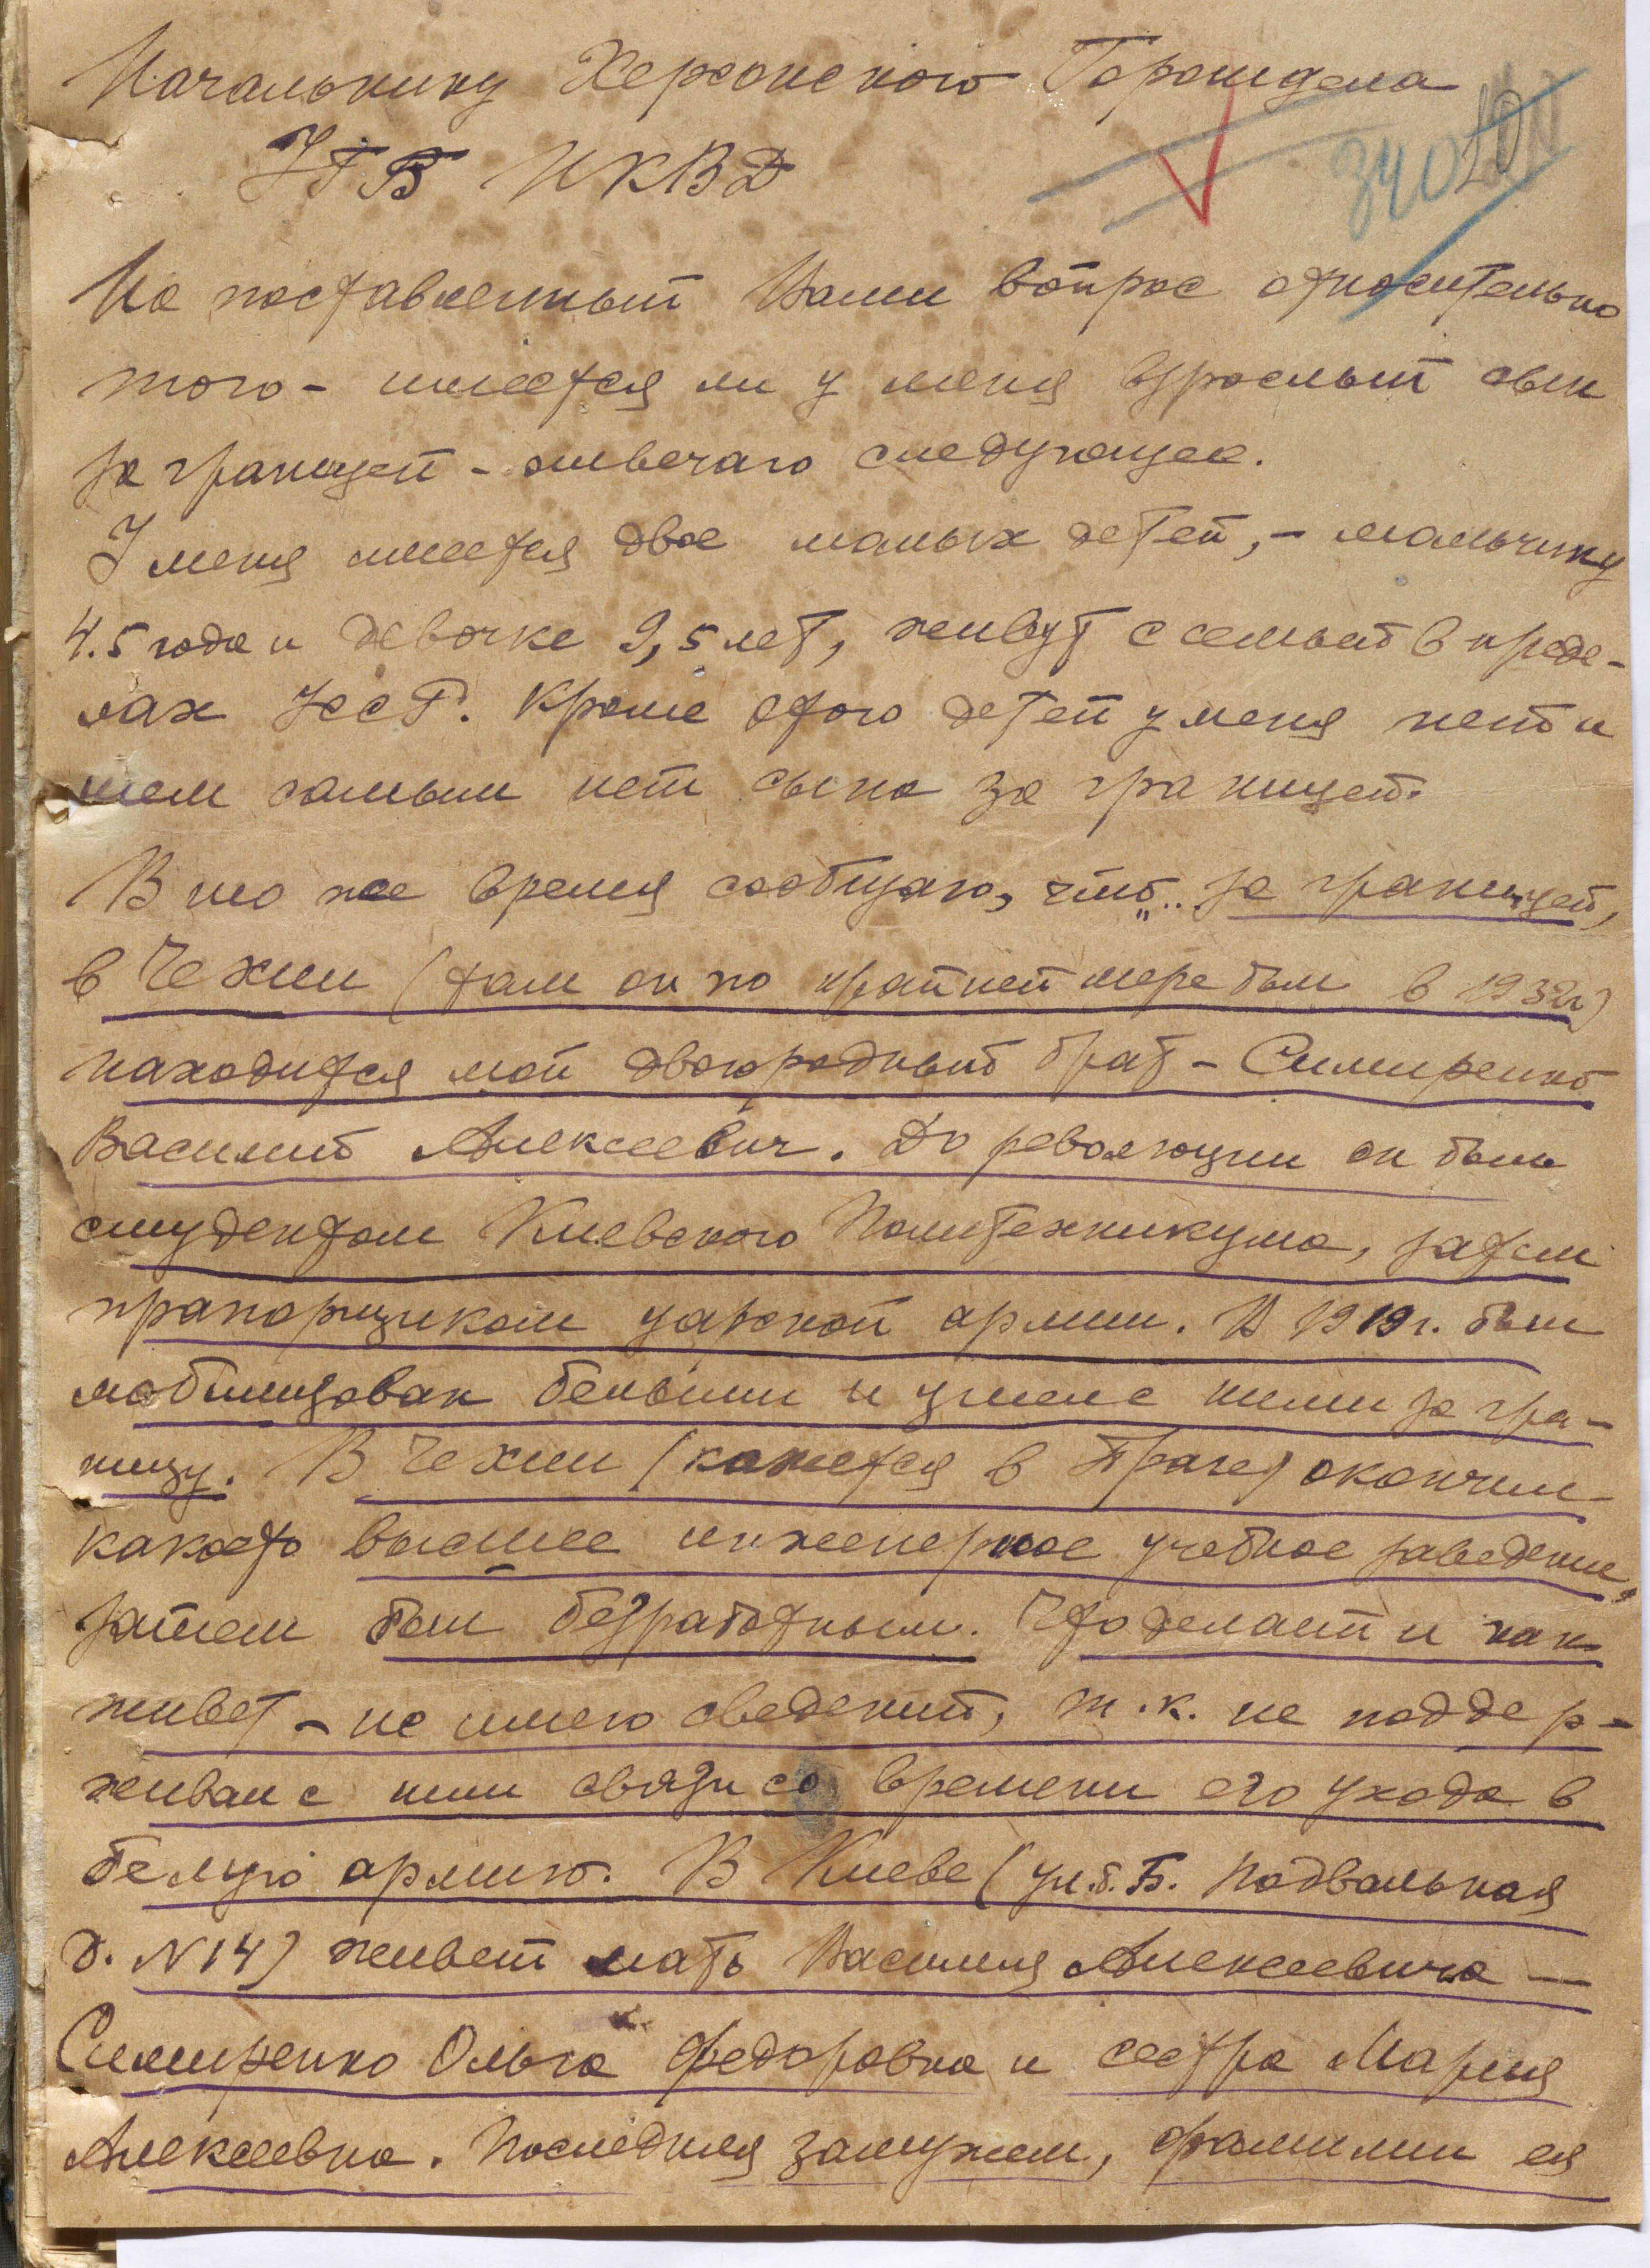 Начальнику Херсонского Горотдела
УГБ НКВД
340
На поставленный Вами вопрос относительно
того – имеется ли у меня взрослый сын
за границей – отвечаю следующее.
У меня имеется двое малых детей, – мальчику
4.5 года и девочке 9,5 лет, живут с семьей в преде-
лах УССР. Кроме этого детей у меня нет и
тем самым нет сына за границей.
В то же время сообщаю, что за границей,
в Чехии (там он по крайней мере был в 1932г)
находится мой двоюродный брат – Симиренко
Василий Алексеевич. До революции он был
студентом Киевского Политехникума, затем
прапорщиком царской армии. В 1919г. был
мобилизован белыми и ушел с ними за гра-
ницу. В Чехии (кажется в Праге) окончил
какоето высшее инженерное учебное заведение,
затем был безработным. Что делает и как
живет – не имею сведений, т.к. не поддер-
живал с ним связи со времени его ухода в
белую армию. В Киеве (ул. Б. Подвальная
д. N14) живет мать Василия Алексеевича —
Симиренко Ольга Федоровна и сестра Мария
Алексеевна. Последняя замужем, фамилии ея